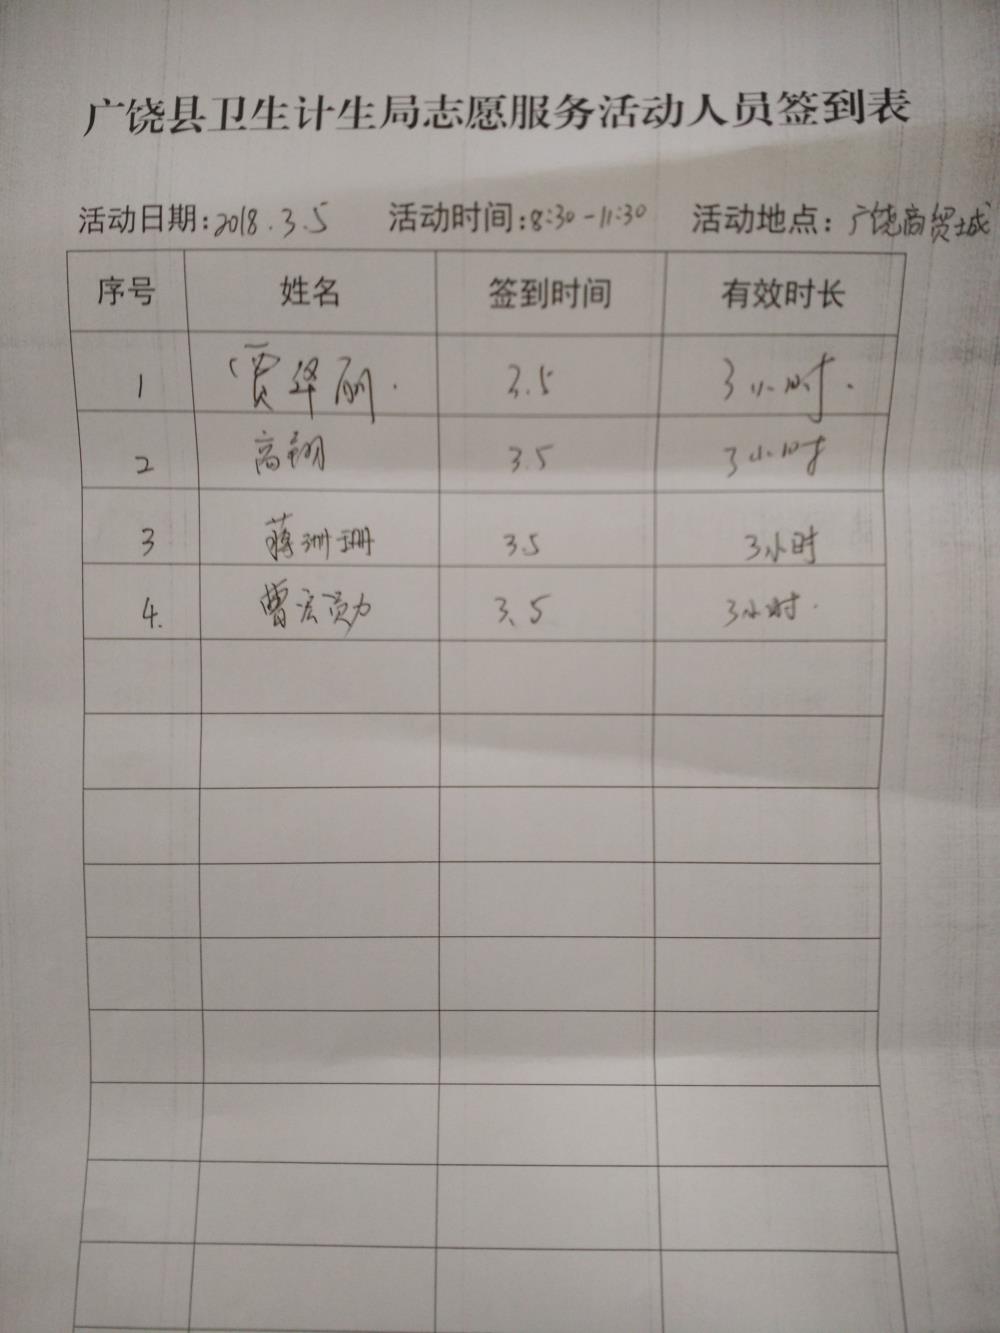 广饶县卫生计生局志愿服务活动人员签到表
活动日期:2018.3.5 活动时间:8:30-11:30 活动地点:广饶商贸城
序号 姓名 签到时间 有效时长
1 贾华丽. 3.5 3小时.
2 高翔 3.5 3小时
3 蒋珊珊 3.5 3小时
4. 曹宏 3.5 3小时.